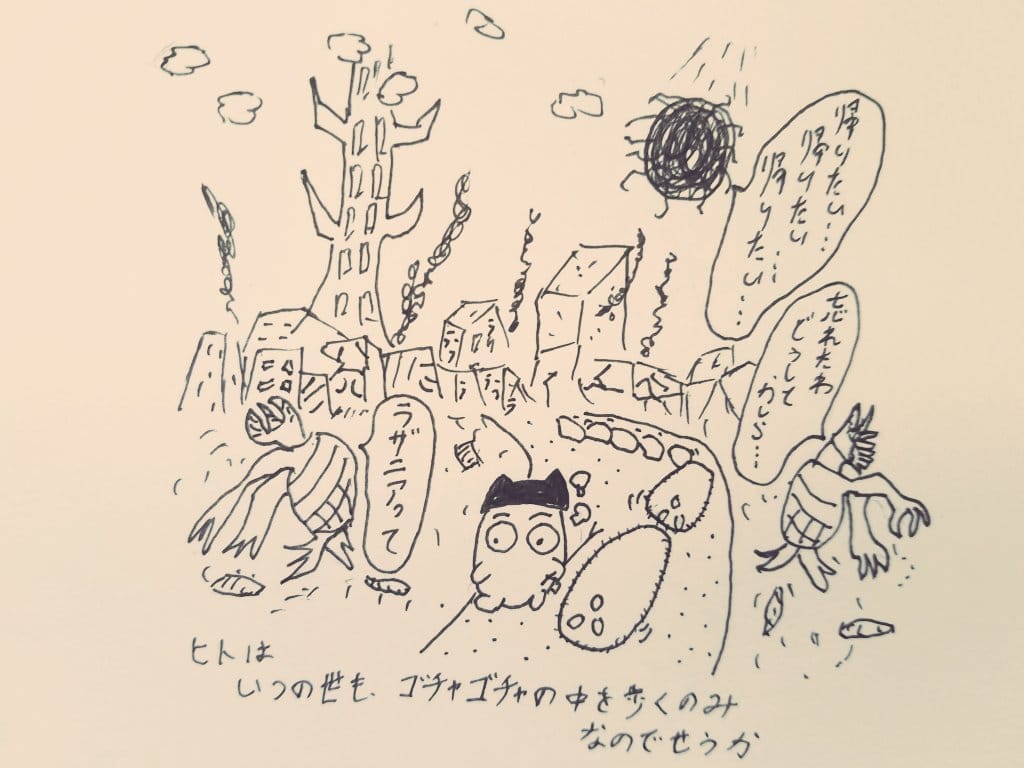 帰りたい…
帰りたい
帰りたい…
忘れたわ
どうして
かしら…
ラザニアって
ヒトは
いつの世も、ゴチャゴチャの中を歩くのみ
なのでせうか